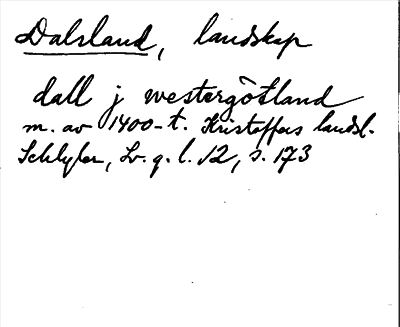 Dalsland, landskap
dall j westergötland
m. av 1400-t. Kristoffers landsl.
Schlyter, Sv. g. l. 12, s. 173